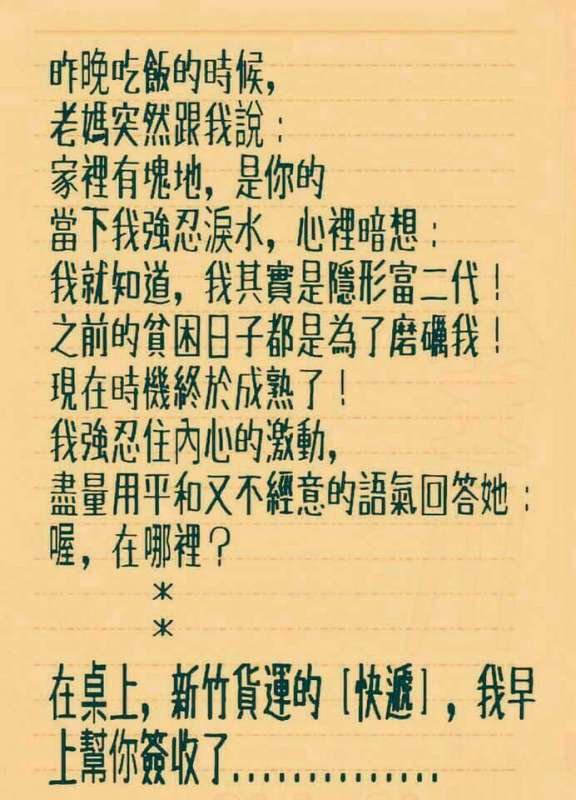 昨晚吃飯的時候，
老媽突然跟我說：
家裡有塊地，是你的
當下我強忍淚水，心裡暗想：
我就知道，我其實是隱形富二代！
之前的貧困日子都是為了磨礪我！
現在時機終於成熟了！
我強忍住內心的激動，
盡量用平和又不經意的語氣回答她：
喔，在哪裡？
*
*
在桌上，新竹貨運的［快遞］，我早
上幫你簽收了................